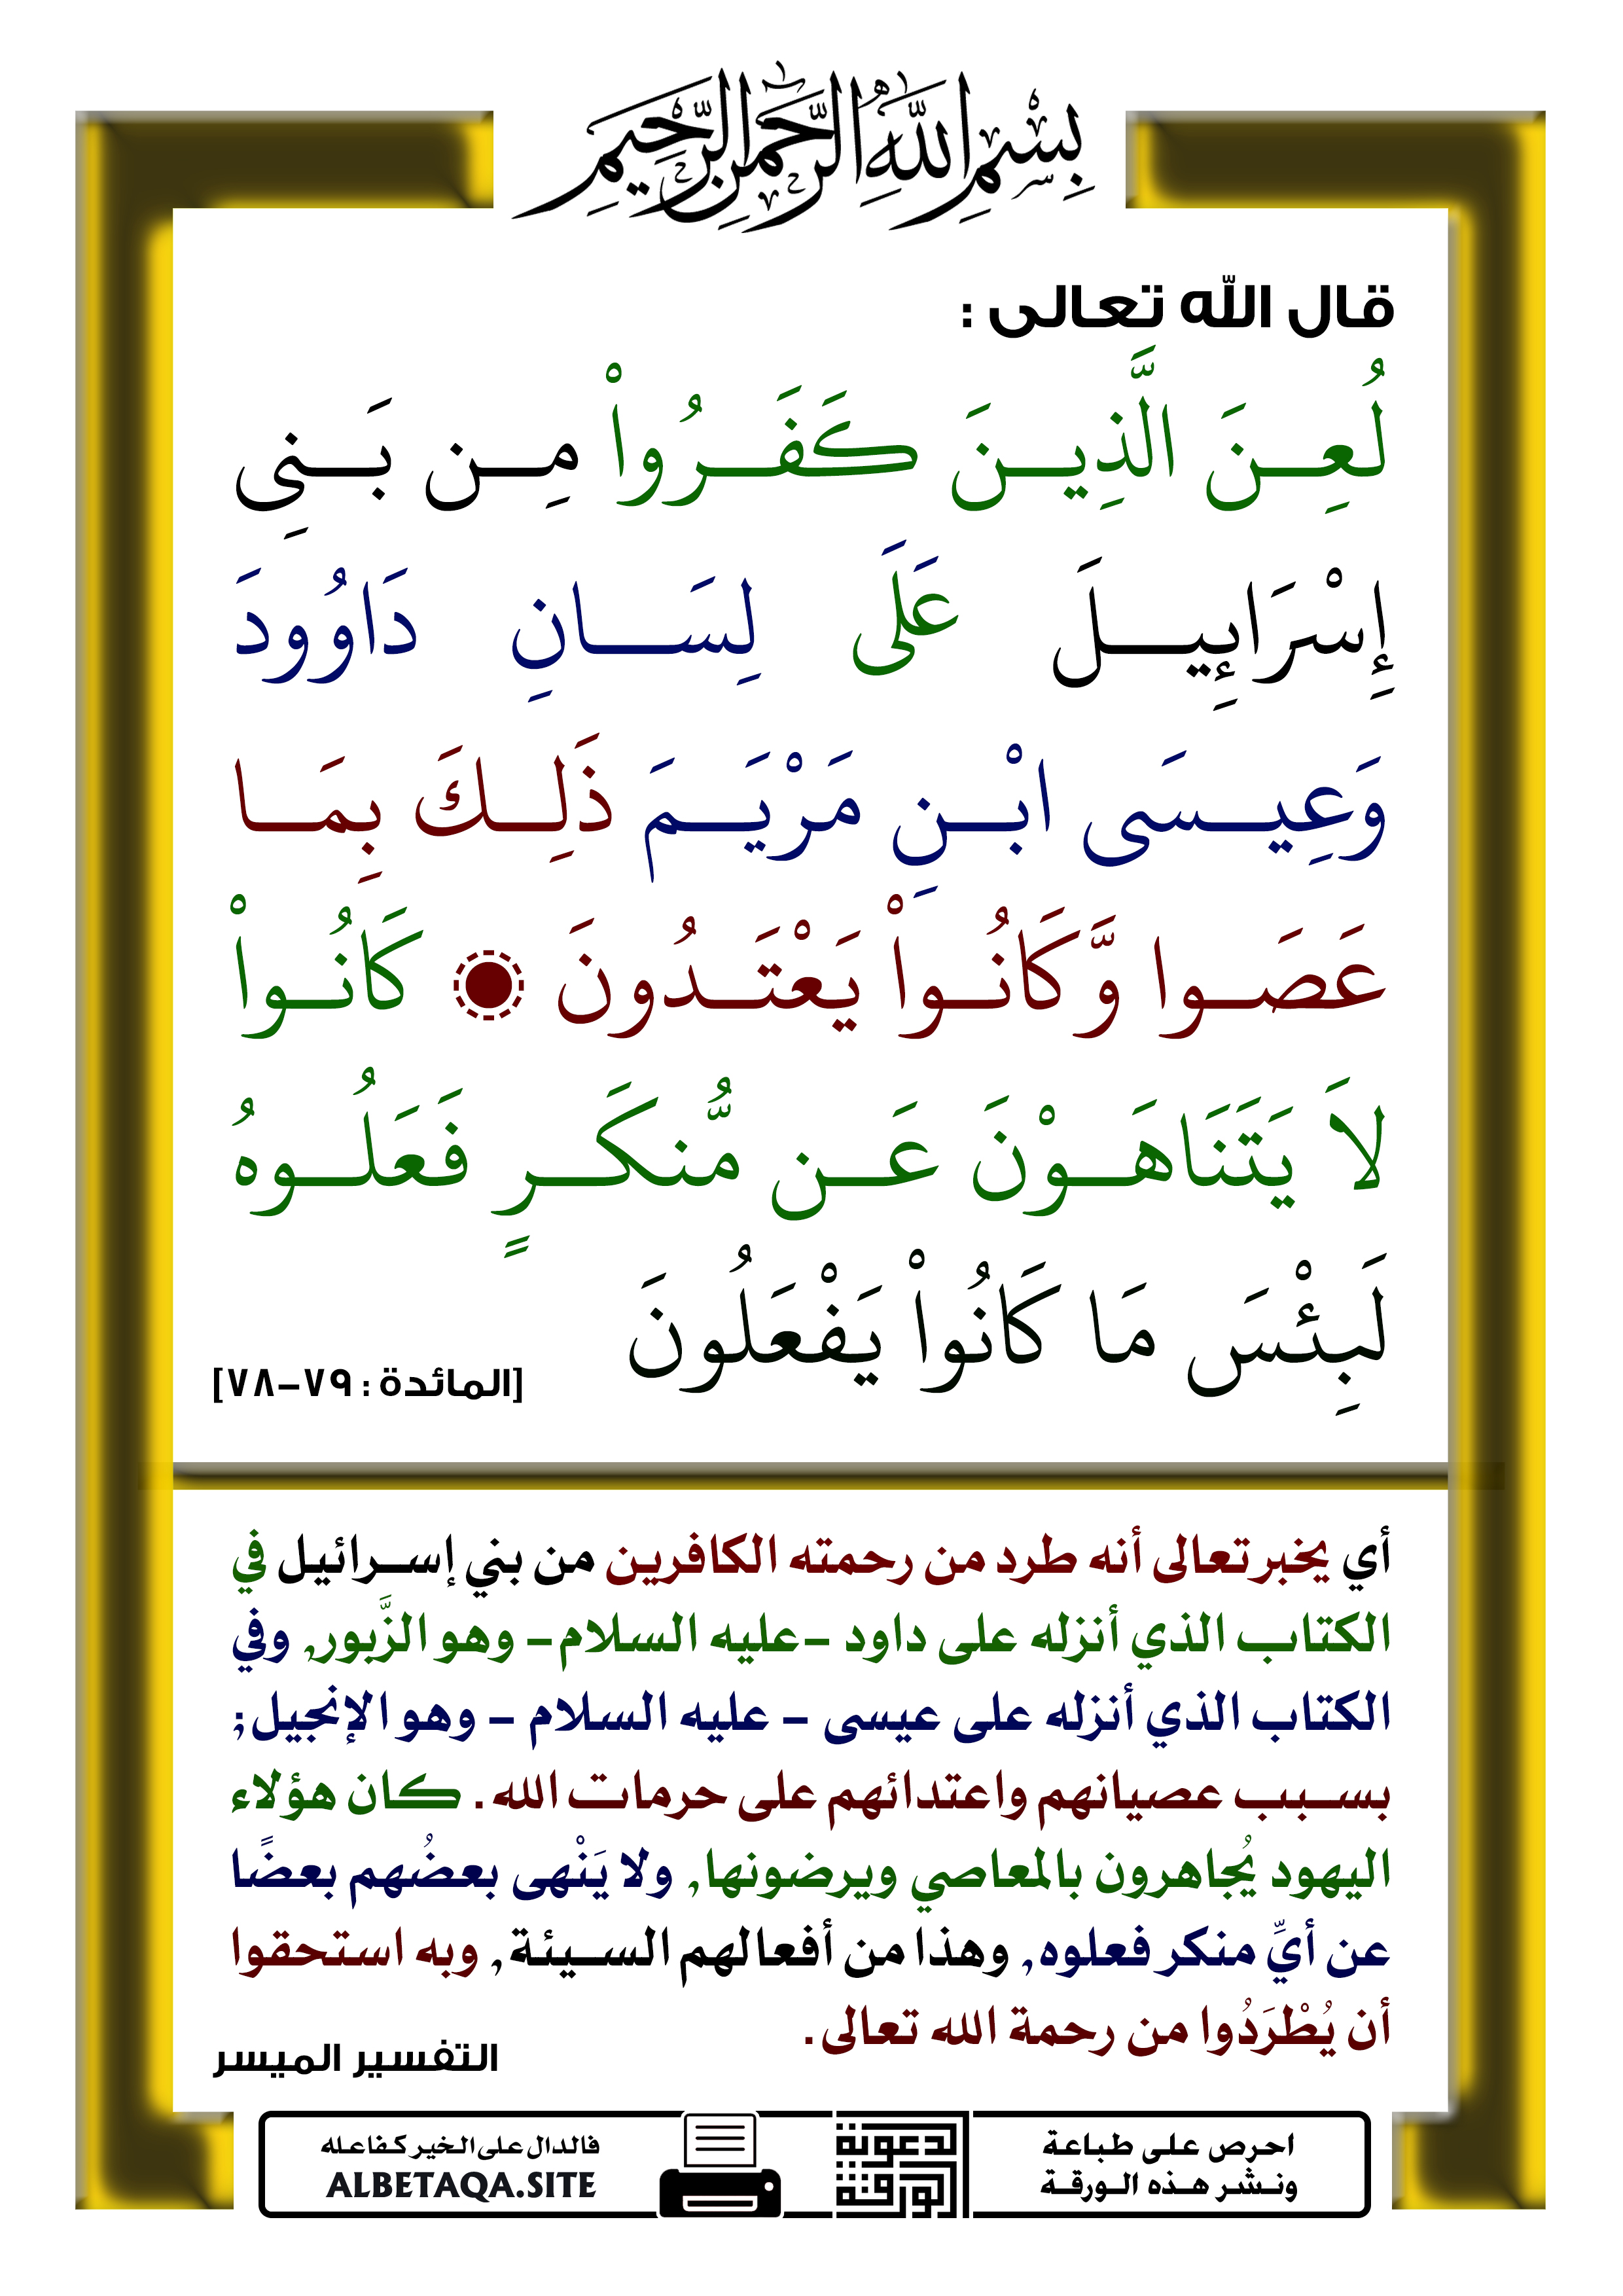 بِسْمِ اللَّهِ الرَّحْمَٰنِ الرَّحِيمِ
قال الله تعالى :
لُعِنَ الَّذِينَ كَفَرُواْ مِن بَنِى
إِسْرَاءِيلَ عَلَى لِسَانِ دَاوُودَ
وَعِيسَى ابْنِ مَرْيَمَ ذَلِكَ بِمَا
عَصَوا وَّكَانُواْ يَعْتَدُونَ كَانُواْ
لاَ يَتَنَاهَوْنَ عَن مُّنكَرٍ فَعَلُوهُ
لَبِئْسَ مَا كَانُواْ يَفْعَلُونَ
[المائدة : ٧٩-٧٨]
أي يخبر تعالى أنه طرد من رحمته الكافرين من بني إسرائيل في
الكتاب الذي أنزله على داود -عليه السلام- وهو الزَّبور, وفي
الكتاب الذي أنزله على عيسى - عليه السلام - وهو الإنجيل;
بسبب عصيانهم واعتدائهم على حرمات الله. كان هؤلاء
اليهود يُجاهرون بالمعاصي ويرضونها, ولا يَنْهى بعضُهم بعضًا
عن أيِّ منكر فعلوه, وهذا من أفعالهم السيئة, وبه استحقوا
أن يُطْرَدُوا من رحمة الله تعالى.
التفسير الميسر
احرص على طباعة
ونشر هذه الورقة
الدعوية
الورقة
فالدال على الخير كفاعله
ALBETAQA.SITE